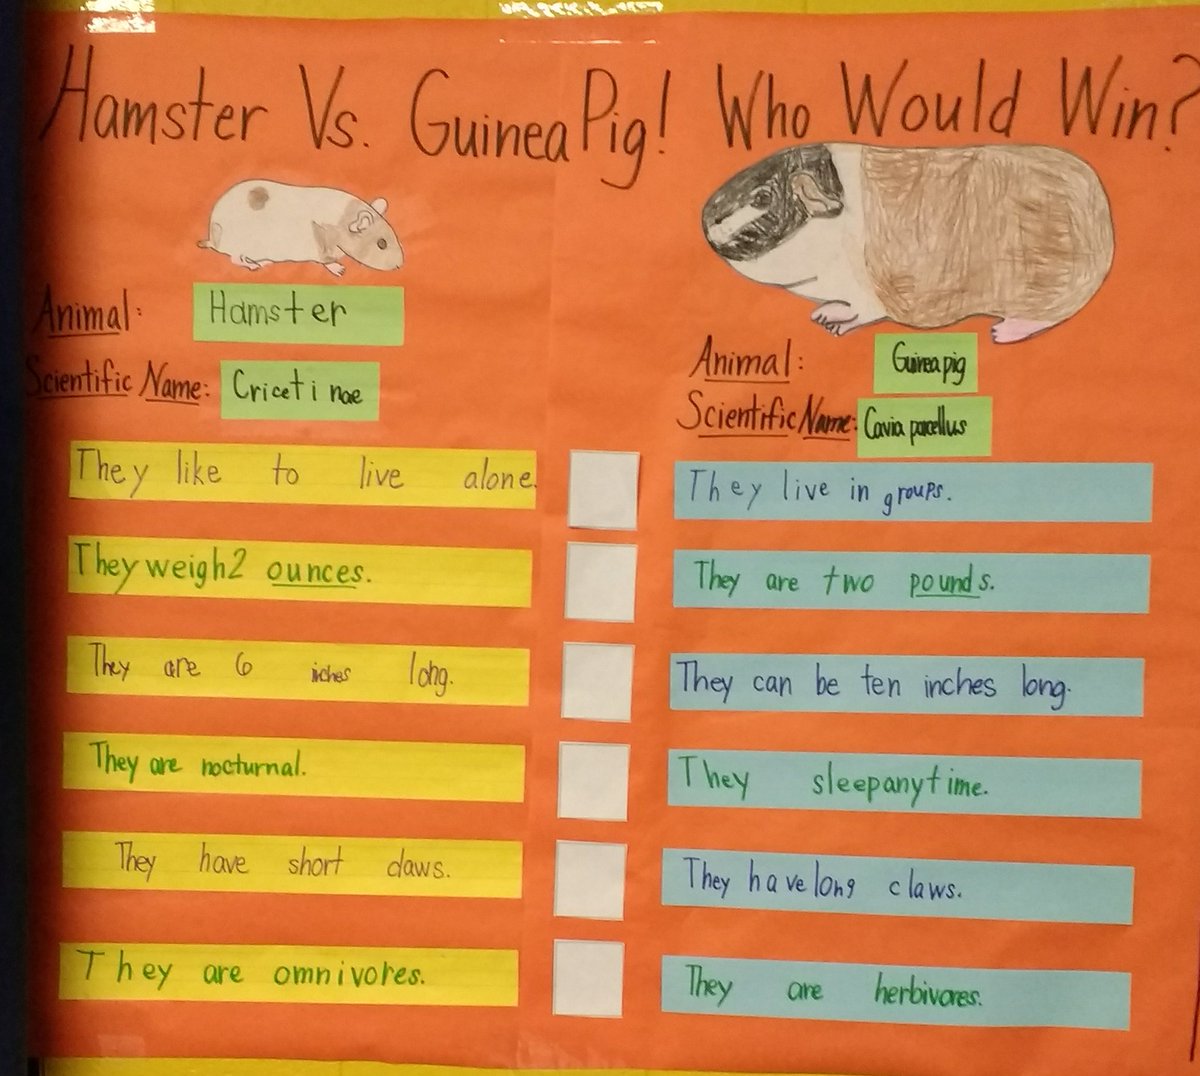 Hamster Vs. Guinea Pig! Who Would Win?
Animal: Hamster
Scientific Name: Cricetinae
They like to live alone.
They weigh 2 ounces.
They are 6 inches long.
They are nocturnal.
They have short claws.
They are omnivores.
Animal: Guinea pig
Scientific Name: Cavia porcellus
They live in groups.
They are two pounds.
They can be ten inches long.
They sleep anytime.
They have long claws.
They are herbivores.